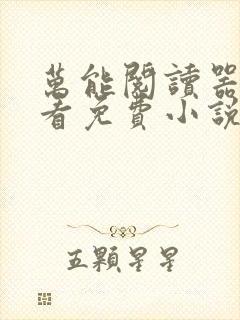 萬能閱讀器
看免費小說
五顆星星